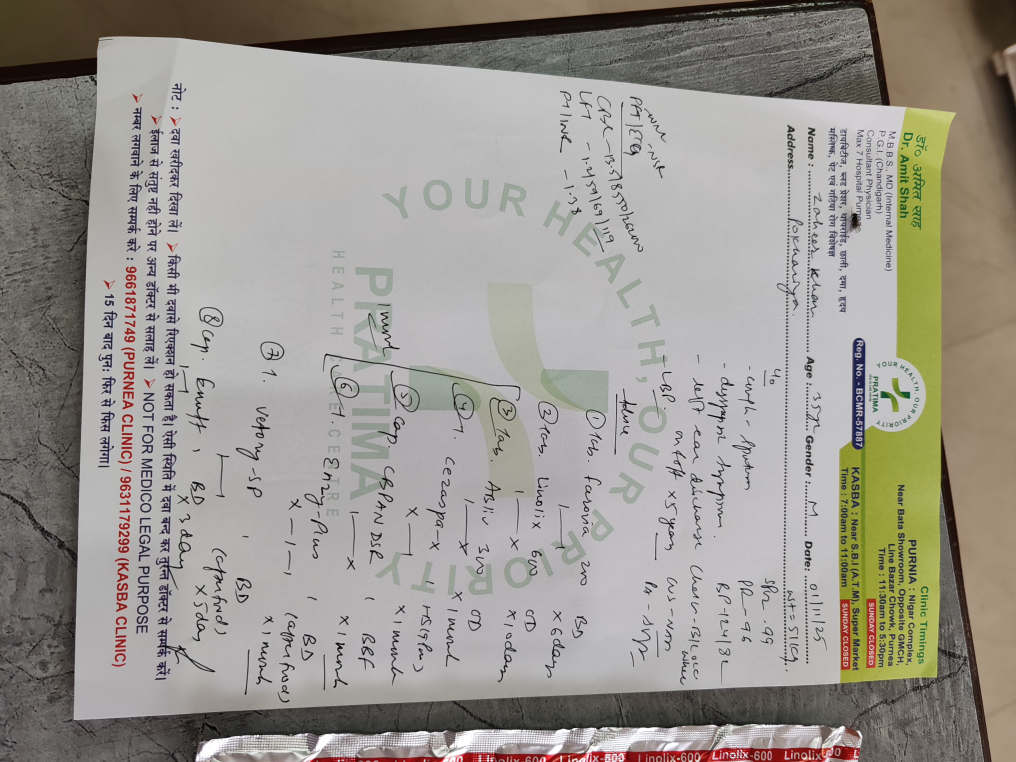 डॉ० अमित साह
Dr. Amit Shah
M.B.B.S., MD (Internal Medicine)
P.G.I. (Chandigarh)
Consultant Physician
Max 7 Hospital Purnea
डायबिटीज, ब्लड प्रेशर, थायरॉईड, छाती, दमा, हृदय
मस्तिष्क, पेट एवं गठिया रोग विशेषज्ञ
YOUR HEALTH, OUR PRIORITY
PRATIMA
Reg. No. - BCMR-57887
Clinic Timings
PURNIA : Nigar Complex,
Near Bata Showroom, Opposite GMCH,
Line Bazar Chowk, Purnea
Time : 11:30am to 5:30pm
SUNDAY CLOSED
KASBA : Near S.B.I (A.T.M), Super Market
Time : 7:00am to 11:00am
SUNDAY CLOSED
Name : Zaheer Khan Age : 35y Gender : M Date: 01/11/25
Address. Pokhariya. wt = 51kg.
SPO2 - 99
c/o
- cough - sputum PR - 96
- dyspepsia symptoms. BP - 124/82
- left ear discharge Chest - B/L occ wheeze
- LBP on & off x 5 years
Advice
CBC - 13.5/8550/
PT/INR - 1.38
① Tab. Farovia 200 BD
1—1 x 6 days
② Tab. Linolix 600 OD
1—x x 10 days
③ Tab. Abliv 300 OD
1—x x 1 month
④ T. Cezaspa-x 1 HS
x—1 x 1 month
⑤ Cap. CBPAN DSR 1 BBF
1—x x 1 month
1 month
⑥ T. Enzy-Plus 1 BD
x—1—1 x 1 month
⑦ T. Vetory-SP 1 BD
1—1 x 5 day
⑧ Cap. 1 BD
1—1 x 3 day
YOUR HEALTH, OUR PRIORITY
PRATIMA
HEALTH CARE CENTRE
नोट : ➤ दवा खरीदकर दिखा लें। ➤ किसी भी दवासे रिएक्शन हो सकता है। ऐसी स्थिति में दवा बन्द कर तुरन्त डॉक्टर से सम्पर्क करें।
➤ ईलाज से संतुष्ट नहीं होने पर अन्य डॉक्टर से सलाह लें। ➤ NOT FOR MEDICO LEGAL PURPOSE
➤ नम्बर लगवाने के लिए सम्पर्क करें : 9661871749 (PURNEA CLINIC) / 9631179299 (KASBA CLINIC)
➤ 15 दिन बाद पुनः फिर से फिस लगेगा।
Linolix-600 Linolix-600 Linolix-600 Linolix-600 Linolix-600